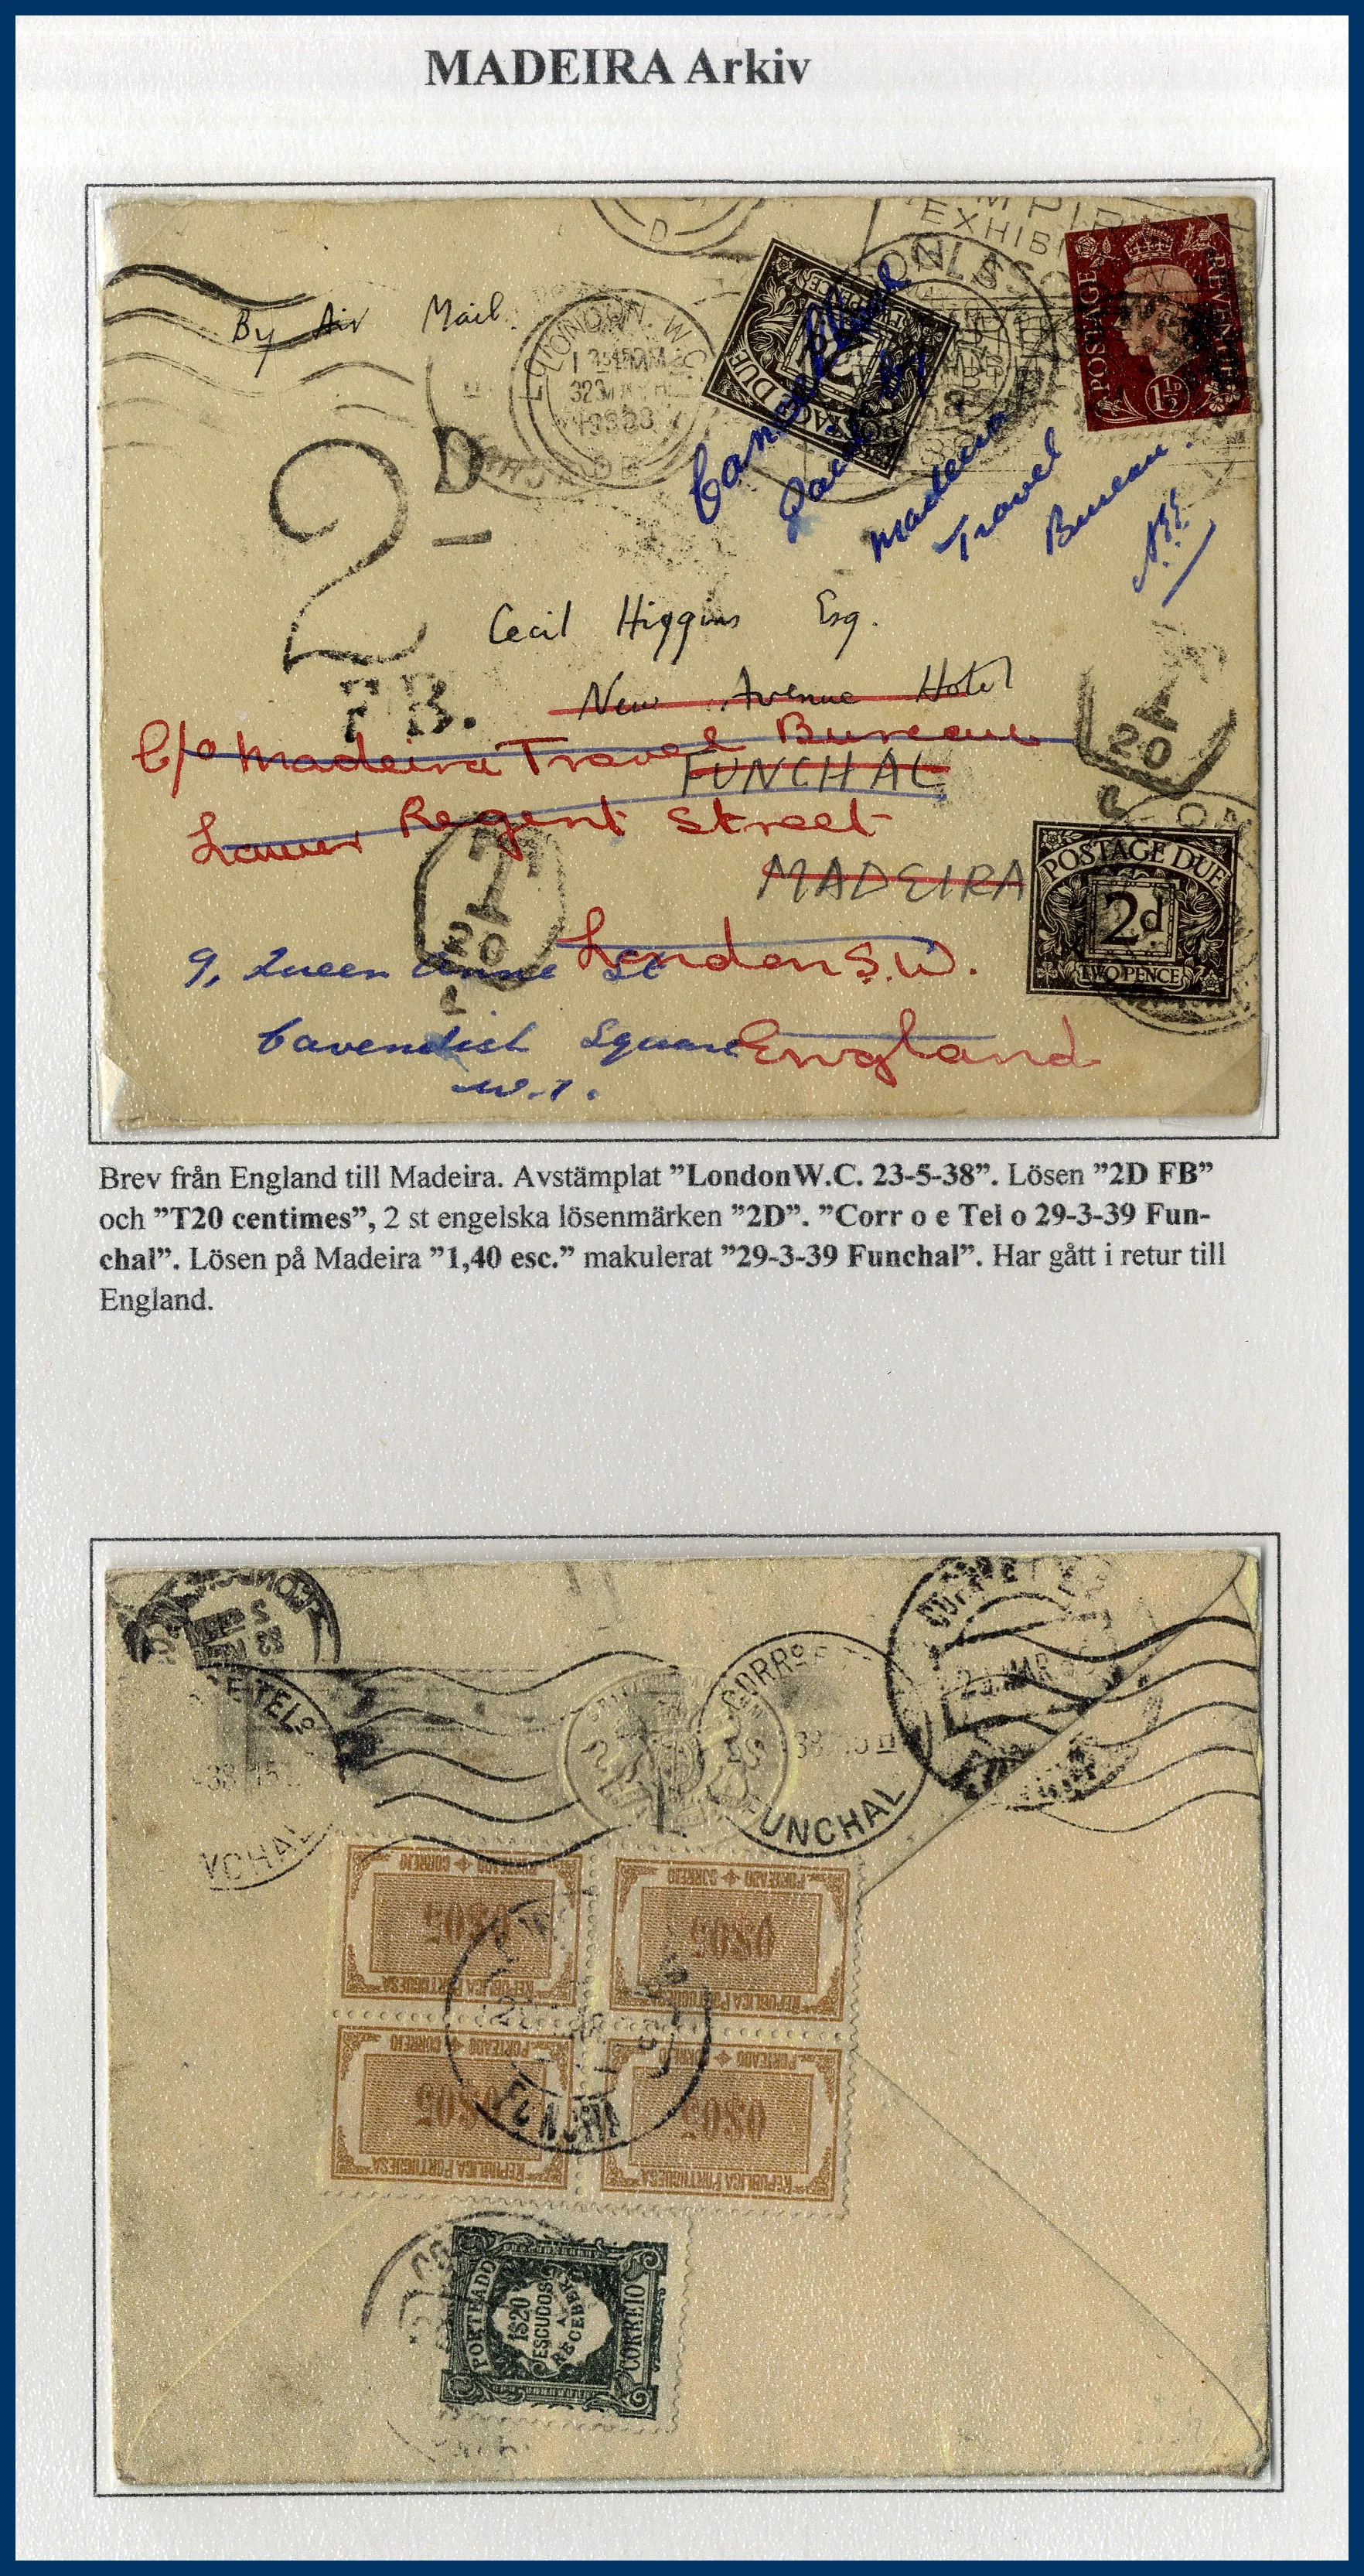 MADEIRA Arkiv
By Air Mail.
LONDON. W.C.
EXHIB
POSTAGE REVENUE
1½D
POSTAGE DUE
Cancelled
Paid by
Madeira
Travel
Bureau.
2D
F.B.
Cecil Higgins Esq.
New Avenue Hotel
C/o Madeira Travel Bureau
FUNCHAL
Lower Regent Street
MADEIRA
T
20
C
T
20
C
POSTAGE DUE
2d
TWO PENCE
London S.W.
9, Queen Anne St
Cavendish Square
England
W.1.
Brev från England till Madeira. Avstämplat ”LondonW.C. 23-5-38”. Lösen ”2D FB”
och ”T20 centimes”, 2 st engelska lösenmärken ”2D”. ”Corr o e Tel o 29-3-39 Fun-
chal”. Lösen på Madeira ”1,40 esc.” makulerat ”29-3-39 Funchal”. Har gått i retur till
England.
E TELº
CORRº
FUNCHAL
PORTEADO CORREIO
0$05
REPUBLICA PORTUGUESA
PORTEADO CORREIO
0$05
REPUBLICA PORTUGUESA
PORTEADO CORREIO
0$05
REPUBLICA PORTUGUESA
PORTEADO CORREIO
0$05
REPUBLICA PORTUGUESA
PORTEADO
1$20
ESCUDOS
A
RECEBER
CORREIO